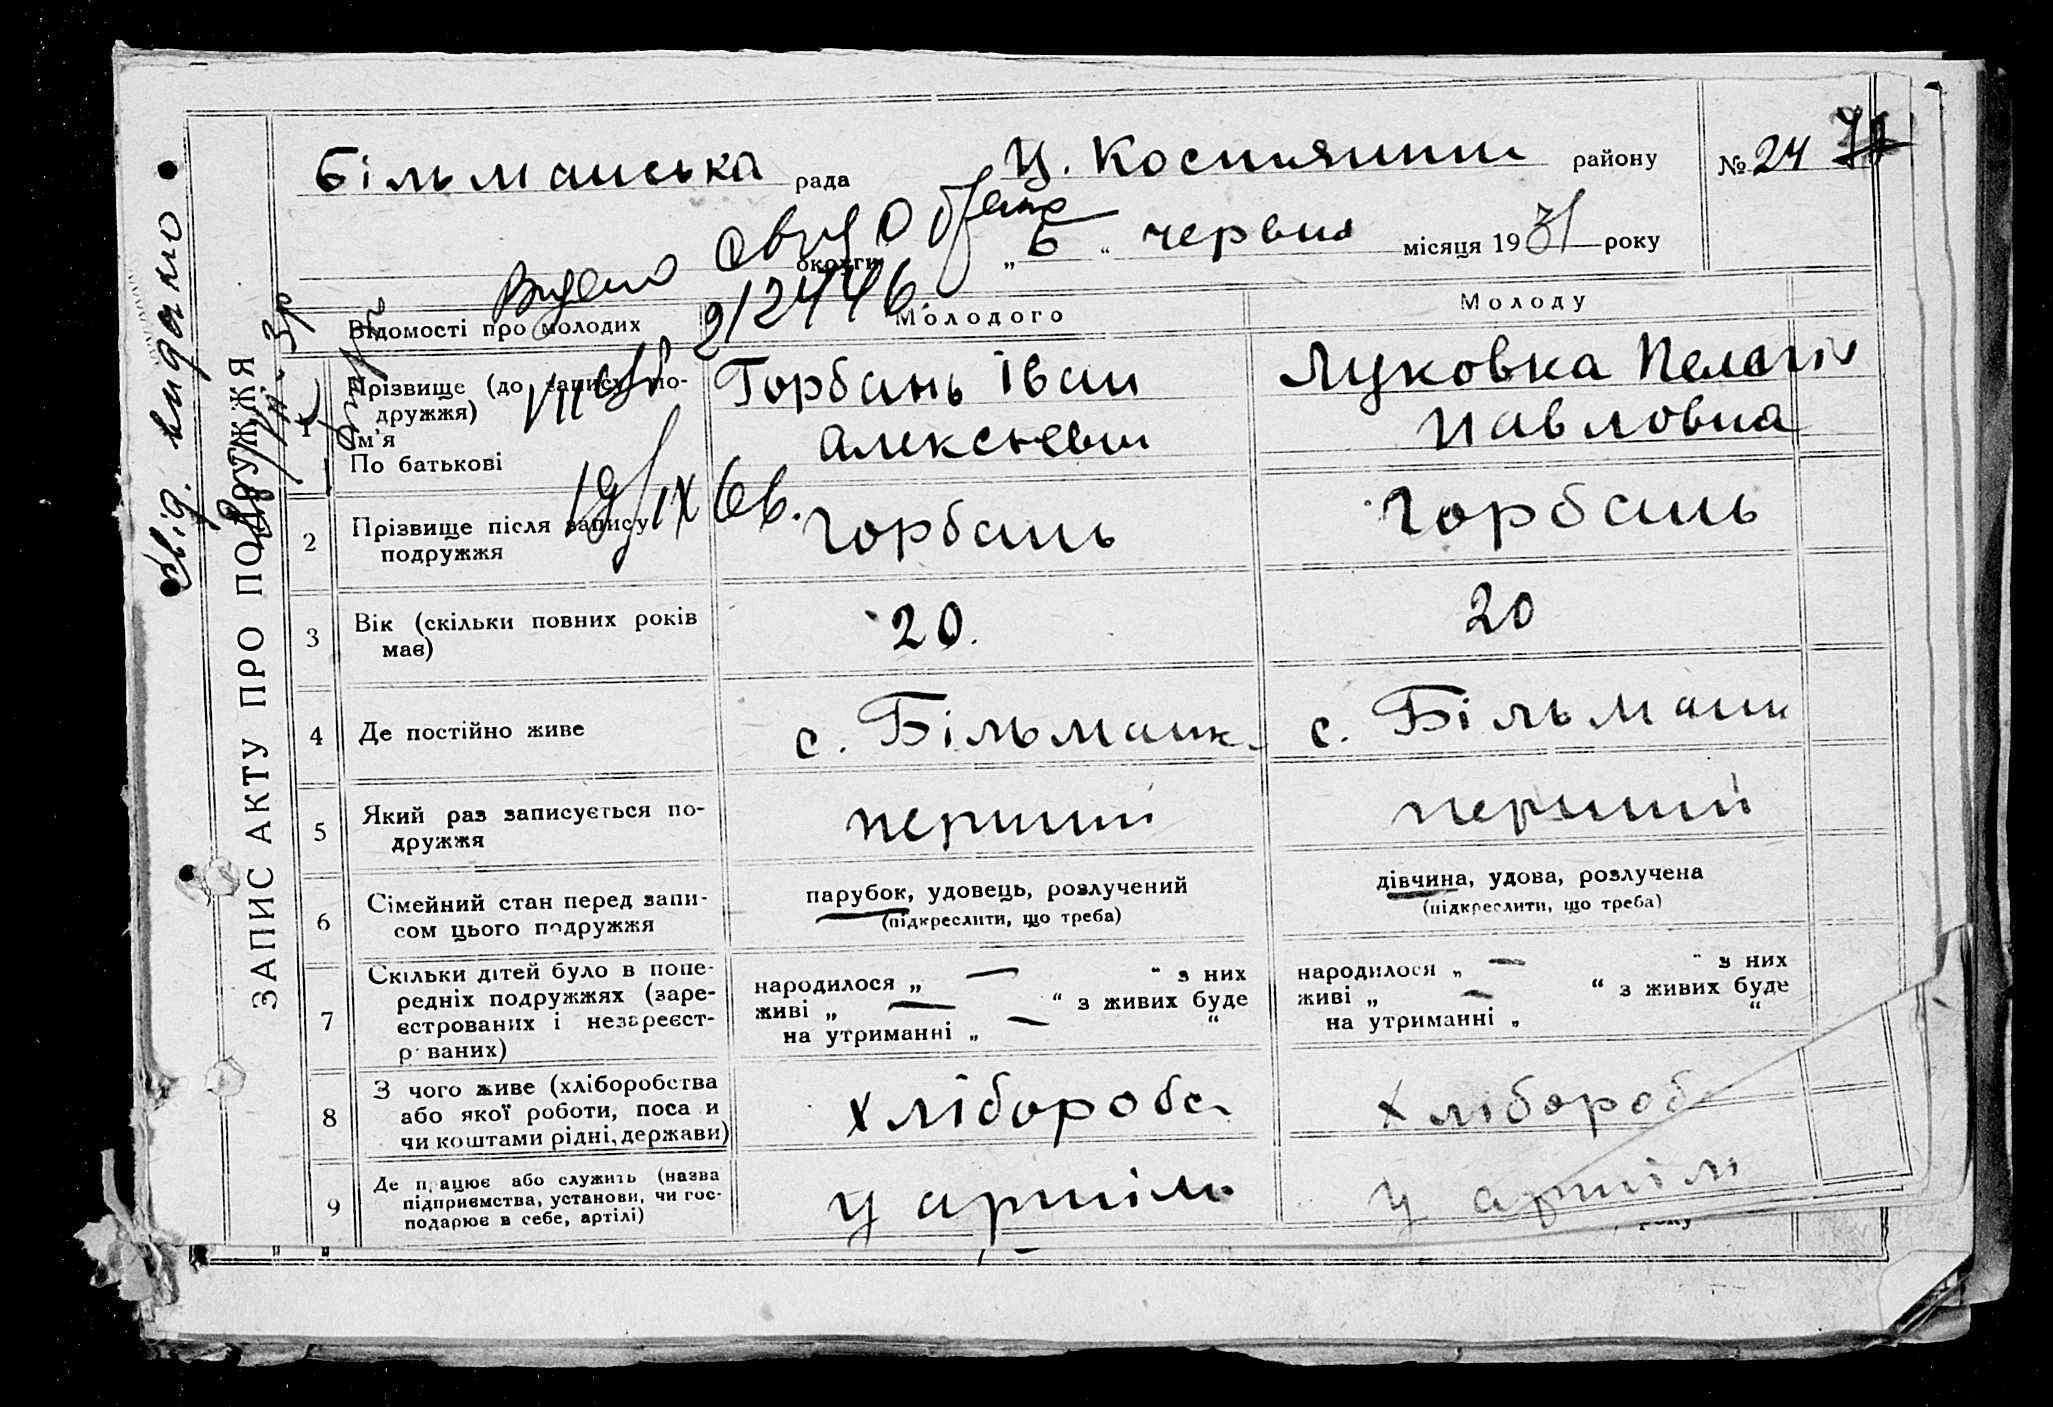 Більманська рада Ц. Костянтин району № 24
округи „ 6 “ червня місяця 1931 року
Видано
212446.
Свід. видано
ЗАПИС АКТУ ПРО ПОДРУЖЖЯ
Відомості про молодих Молодого Молоду
1 Прізвище (до запису по-
дружжя)
Ім’я
По батькові
Горбань Іван
Алексієвич
Луковка Пелагія
Павловна
19/IX 6
2 Прізвище після запису
подружжя
Горбань Горбань
3 Вік (скільки повних років
має)
20. 20
4 Де постійно живе с. Більманк с. Більманк
5 Який раз записується по-
дружжя
перший перший
6 Сімейний стан перед запи-
сом цього подружжя
парубок, удовець, розлучений
(підкреслити, що треба)
дівчина, удова, розлучена
(підкреслити, що треба)
7 Скільки дітей було в попе-
редніх подружжях (заре-
єстрованих і незареєст-
р ваних)
народилося „ — “ з них
живі „ — “ з живих буде
на утриманні „ — “
народилося „ — “ з них
живі „ — “ з живих буде
на утриманні „ “
8 З чого живе (хліборобства
або якої роботи, поса и
чи коштами рідні, держави)
хлібороб хлібороб
9 Де п ацює або служить (назва
підприємства, установи, чи гос-
подарює в себе, артілі)
у артіль у артіль
року